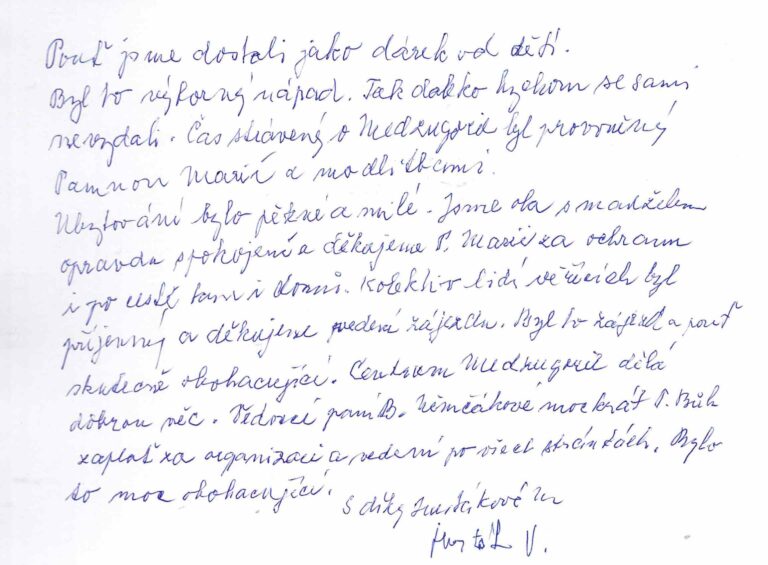 Pouť jsme dostali jako dárek od dětí.
Byl to výborný nápad. Tak daleko bychom se sami
nevydali. Čas strávený v Medžugorii byl provoněný
Pannou Marií a modlitbami.
Ubytování bylo pěkné a milé. Jsme oba s manželem
opravdu spokojení a děkujeme P. Marii za ochranu
i po cestě tam i domů. Kolektiv lidí věřících byl
příjemný a děkujeme vedení zájezdu. Byl to zájezd a pouť
skutečně obohacující. Centrum Medžugorie dělá
dobrou věc. Vedoucí paní B. Němčákové mockrát P. Bůh
zaplať za organizaci a vedení po všech stránkách. Bylo
to moc obohacující.
S díky
V.